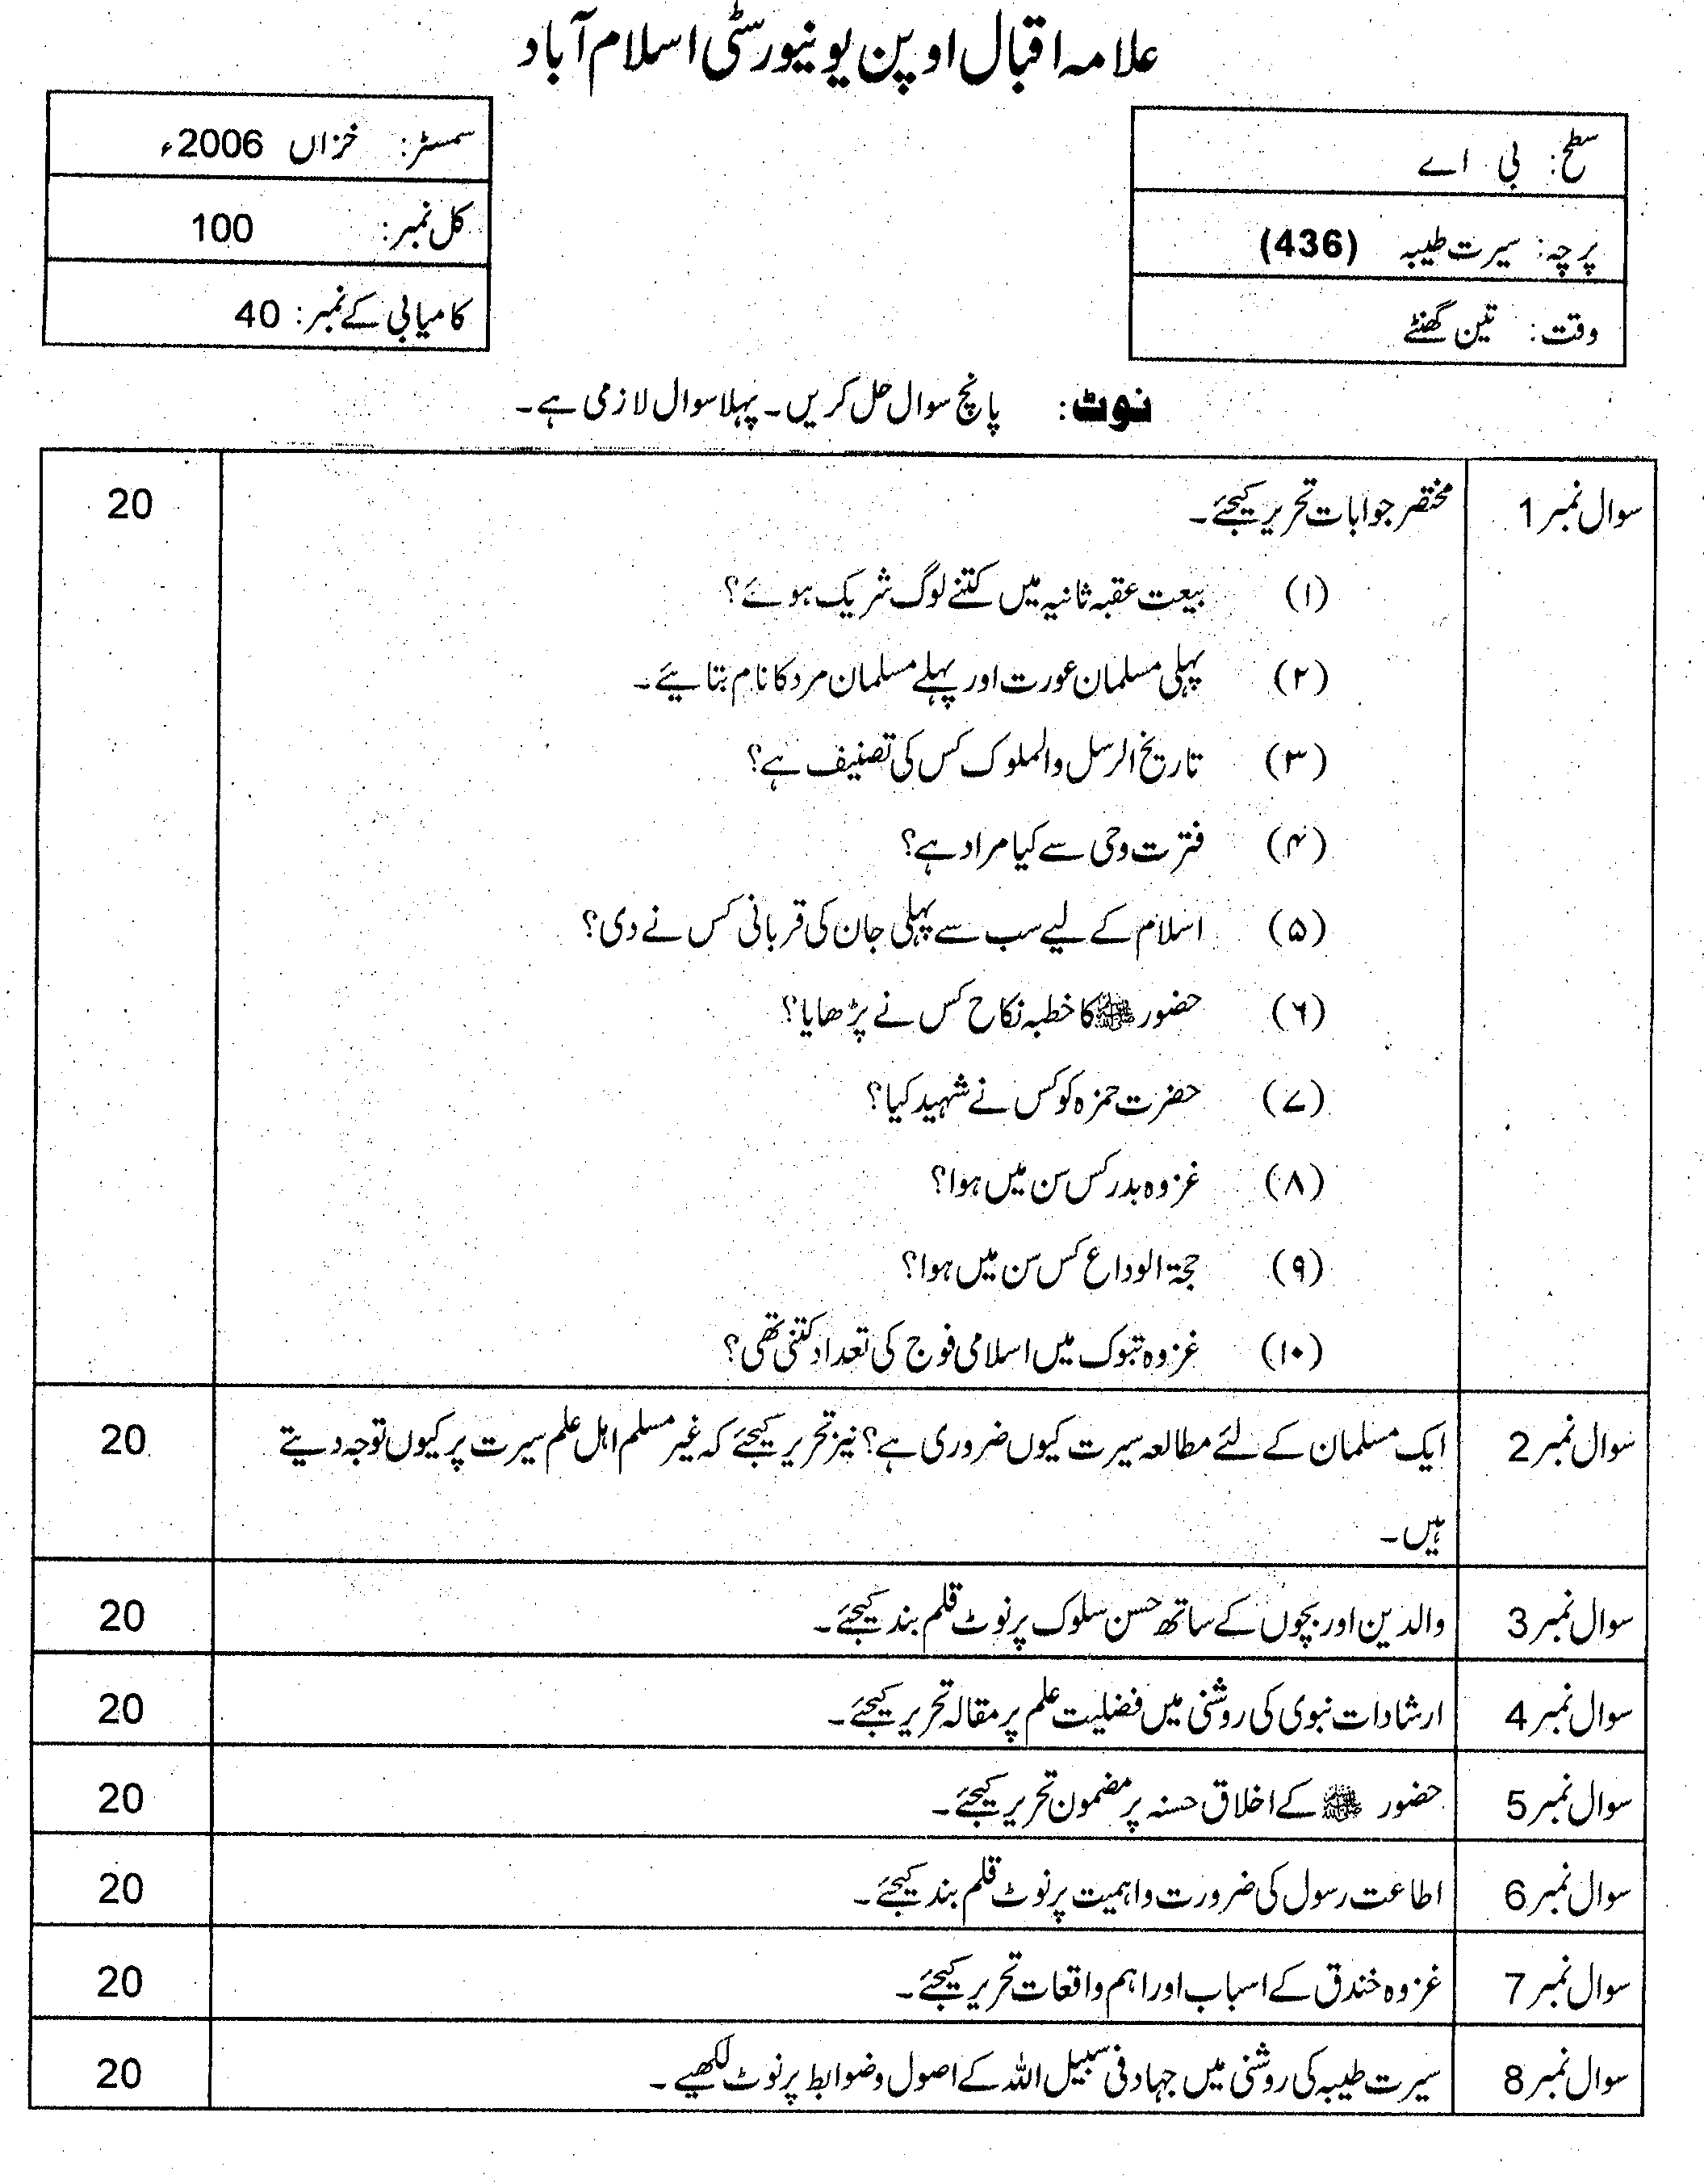 علامہ اقبال اوپن یونیورسٹی اسلام آباد
سطح: بی اے
پرچہ: سیرت طیبہ (436)
وقت: تین گھنٹے
سمسٹر: خزاں 2006ء
کل نمبر: 100
کامیابی کے نمبر: 40
نوٹ: پانچ سوال حل کریں۔ پہلا سوال لازمی ہے۔
سوال نمبر 1 مختصر جوابات تحریر کیجئے۔ 20
(۱) بیعت عقبہ ثانیہ میں کتنے لوگ شریک ہوئے؟
(۲) پہلی مسلمان عورت اور پہلے مسلمان مرد کا نام بتایئے۔
(۳) تاریخ الرسل والملوک کس کی تصنیف ہے؟
(۴) فترت وحی سے کیا مراد ہے؟
(۵) اسلام کے لیے سب سے پہلی جان کی قربانی کس نے دی؟
(۶) حضور ﷺ کا خطبہ نکاح کس نے پڑھایا؟
(۷) حضرت حمزہ کو کس نے شہید کیا؟
(۸) غزوہ بدر کس سن میں ہوا؟
(۹) حجۃ الوداع کس سن میں ہوا؟
(۱۰) غزوہ تبوک میں اسلامی فوج کی تعداد کتنی تھی؟
سوال نمبر 2 ایک مسلمان کے لئے مطالعہ سیرت کیوں ضروری ہے؟ نیز تحریر کیجئے کہ غیر مسلم اہل علم سیرت پر کیوں توجہ دیتے 20
ہیں۔
سوال نمبر 3 والدین اور بچوں کے ساتھ حسن سلوک پر نوٹ قلم بند کیجئے۔ 20
سوال نمبر 4 ارشادات نبوی کی روشنی میں فضلیت علم پر مقالہ تحریر کیجئے۔ 20
سوال نمبر 5 حضور ﷺ کے اخلاق حسنہ پر مضمون تحریر کیجئے۔ 20
سوال نمبر 6 اطاعت رسول کی ضرورت واہمیت پر نوٹ قلم بند کیجئے۔ 20
سوال نمبر 7 غزوہ خندق کے اسباب اور اہم واقعات تحریر کیجئے۔ 20
سوال نمبر 8 سیرت طیبہ کی روشنی میں جہاد فی سبیل اللہ کے اصول وضوابط پر نوٹ لکھیے۔ 20